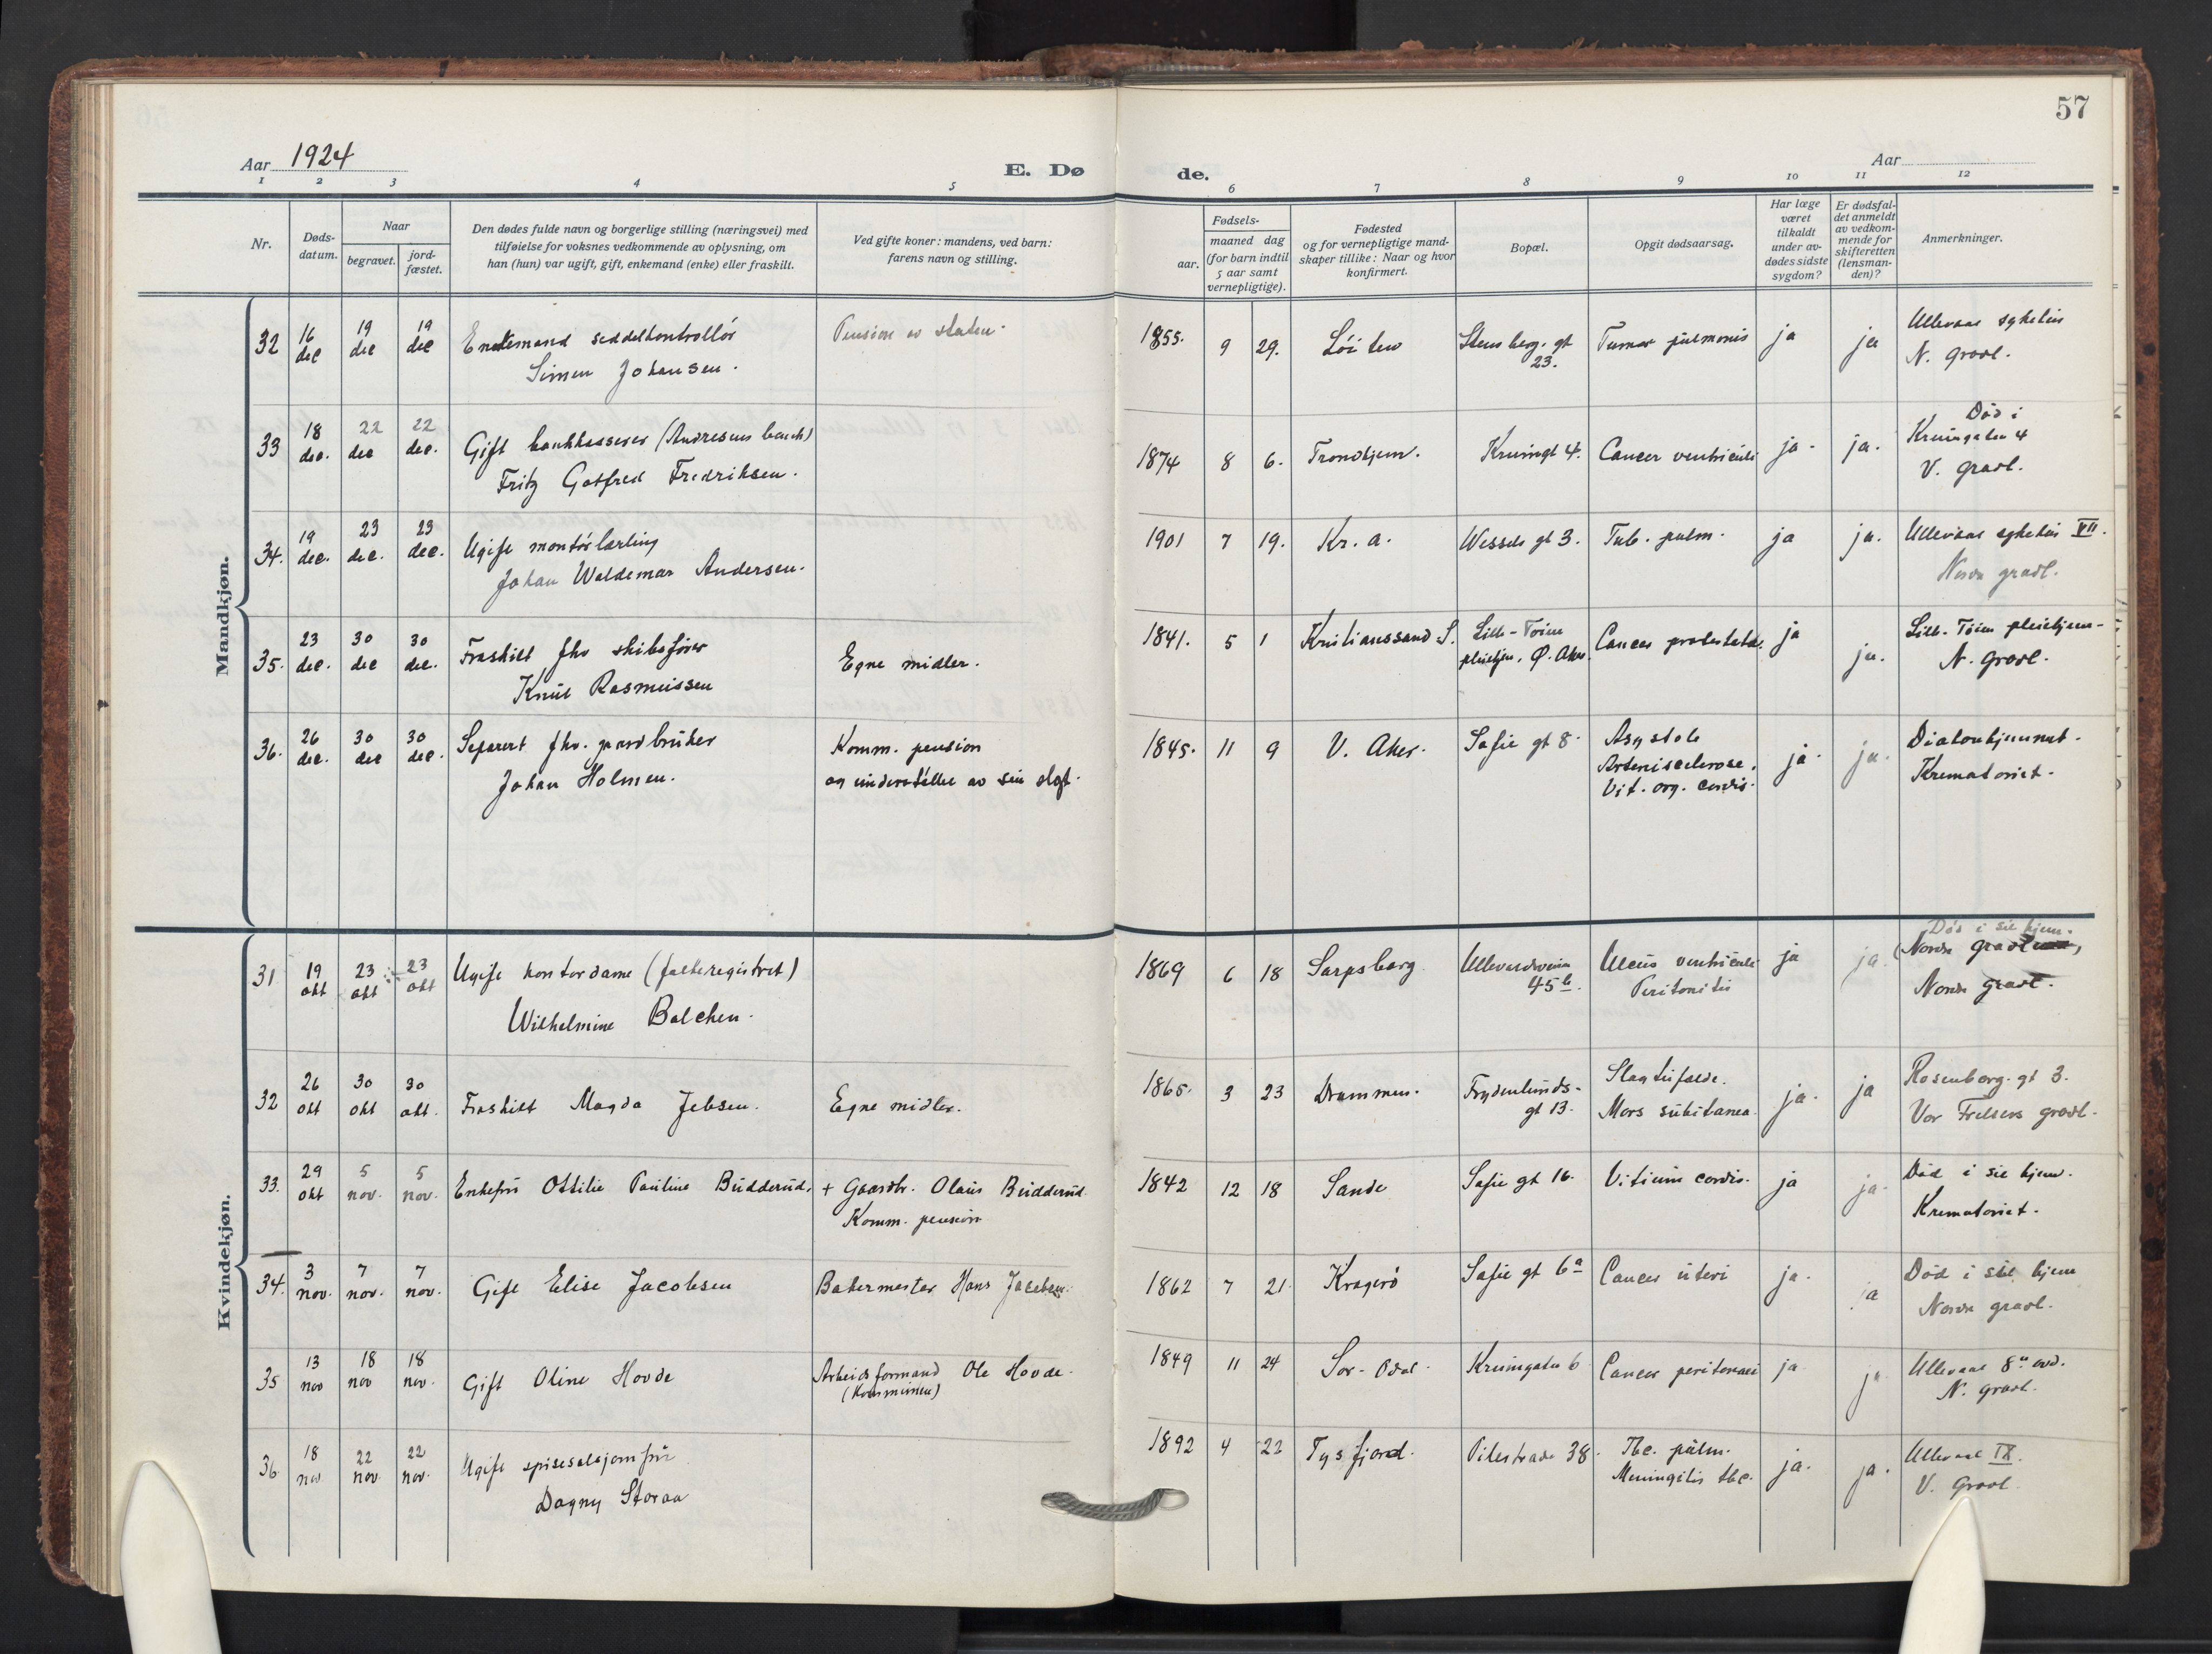 57
Aar 1924
E. Dø
de.
Aar
1 2 3 4 5 6 7 8 9 10 11 12
Nr.
Døds-
datum.
Naar
begravet.
jord-
fæstet.
Den dødes fulde navn og borgerlige stilling (næringsvei) med
tilføielse for voksnes vedkommende av oplysning, om
han (hun) var ugift, gift, enkemand (enke) eller fraskilt.
Ved gifte koner: mandens, ved barn:
farens navn og stilling.
Fødsels-
aar.
maaned dag
(for barn indtil
5 aar samt
vernepligtige).
Fødested
og for vernepligtige mand-
skaper tillike: Naar og hvor
konfirmert.
Bopæl.
Opgit dødsaarsag.
Har læge
været
tilkaldt
under av-
dødes sidste
sygdom?
Er dødsfal-
det anmeldt
av vedkom-
mende for
skifteretten
(lensman-
den)?
Anmerkninger.
Mandkjøn.
32 16 dec 19 dec 19 dec
Enkemand seddelkontrollör
Simen Johansen.
Pension av staten.
1855. 9 29. Löiten
Stensberg. gt
23.
Tumor pulmonis ja ja
Ullevaal sykehus
N. gravl.
33 18 dec. 22 dec 22 dec.
Gift bankkasserer (Andresens bank)
Fritz Gotfred Fredriksen.
1874 8 6. Trondhjem. Keisingt 4. Cancer ventriculi ja. ja.
Död i
V. gravl.
34. 19 dec. 23 dec. 23 dec.
Ugift montörlærling
Johan Waldemar Andersen.
1901 7 19. Kr. a. Wessels gt 3. Tub. pulm. ja ja.
Ullevaal sykehus VII.
Nordre gravl.
35. 23 dec. 30 dec 30 dec.
Fraskilt fhv skibsförer
Knut Rasmussen
Egne midler.
1841. 5 1 Kristianssand S.
Lille-Töien
pleiehjem, Ø. Aker.
Cancer prostatata. ja ja.
Lille-Töien pleiehjem-
N. gravl.
36. 26 dec. 30 dec 30 dec.
Separert fhv. gaardbruker
Johan Holmen.
Komm. pension
og understöttet av sin slegt.
1845. 11 9 V. Aker. Sofie gt 8.
Asystole
Arteriosclerose.
Vit. org. cordis.
ja. ja.
Diakonhjemmet.
Krematoriet.
Kvindekjøn.
31 19 okt 23 okt 23 okt
Ugift kontordame (folkeregistret)
Wilhelmine Balchen.
1869 6 18 Sarpsborg
Ullevaalsveien
45 b.
Ulcus ventriculi
Peritonitis
ja ja.
Död i sit hjem.
Nordre gravl
Nordre gravl.
32 26 okt 30 okt 30 okt.
Fraskilt Magda Jebsen.
Egne midler.
1865. 3 23 Drammen.
Frydenlunds-
gt 13.
Slagtilfælde.
Mors subitanea.
ja. ja
Rosenborg. gt 3.
Vor Frelsers gravl.
33. 29 okt 5 nov. 5 nov.
Enkefru Ottilie Pauline Budderud.
+ Gaardbr. Olaus Budderud
Komm. pension
1842 12 18 Sande Sofie gt 16. Vitium cordis. ja ja.
Död i sit hjem.
Krematoriet.
34. 3 nov. 7 nov. 7 nov.
Gift Elise Jacobsen
Bakermester Hans Jacobsen.
1862 7 21. Kragerö Sofie gt 6a Cancer uteri ja. ja
Död i sit hjem
Nordre gravl.
35 13 nov 18 nov 18 nov.
Gift Oline Hovde
Arbeidsformand Ole Hovde.
(Kommunen)
1849 11 24 Sör-Odal. Cancer peritonaei ja. ja
Ullevaal 8de avd.
N. gravl.
36. 18 nov. 22 nov. 22 nov.
Ugift spisesalsjomfru
Dagny Storaa
1892 4 22 Tysfjord. Pilestræde 38.
Tbc. pulm.
Meningitis tbc.
ja. ja.
Ullevaal IX.
V. Gravl.